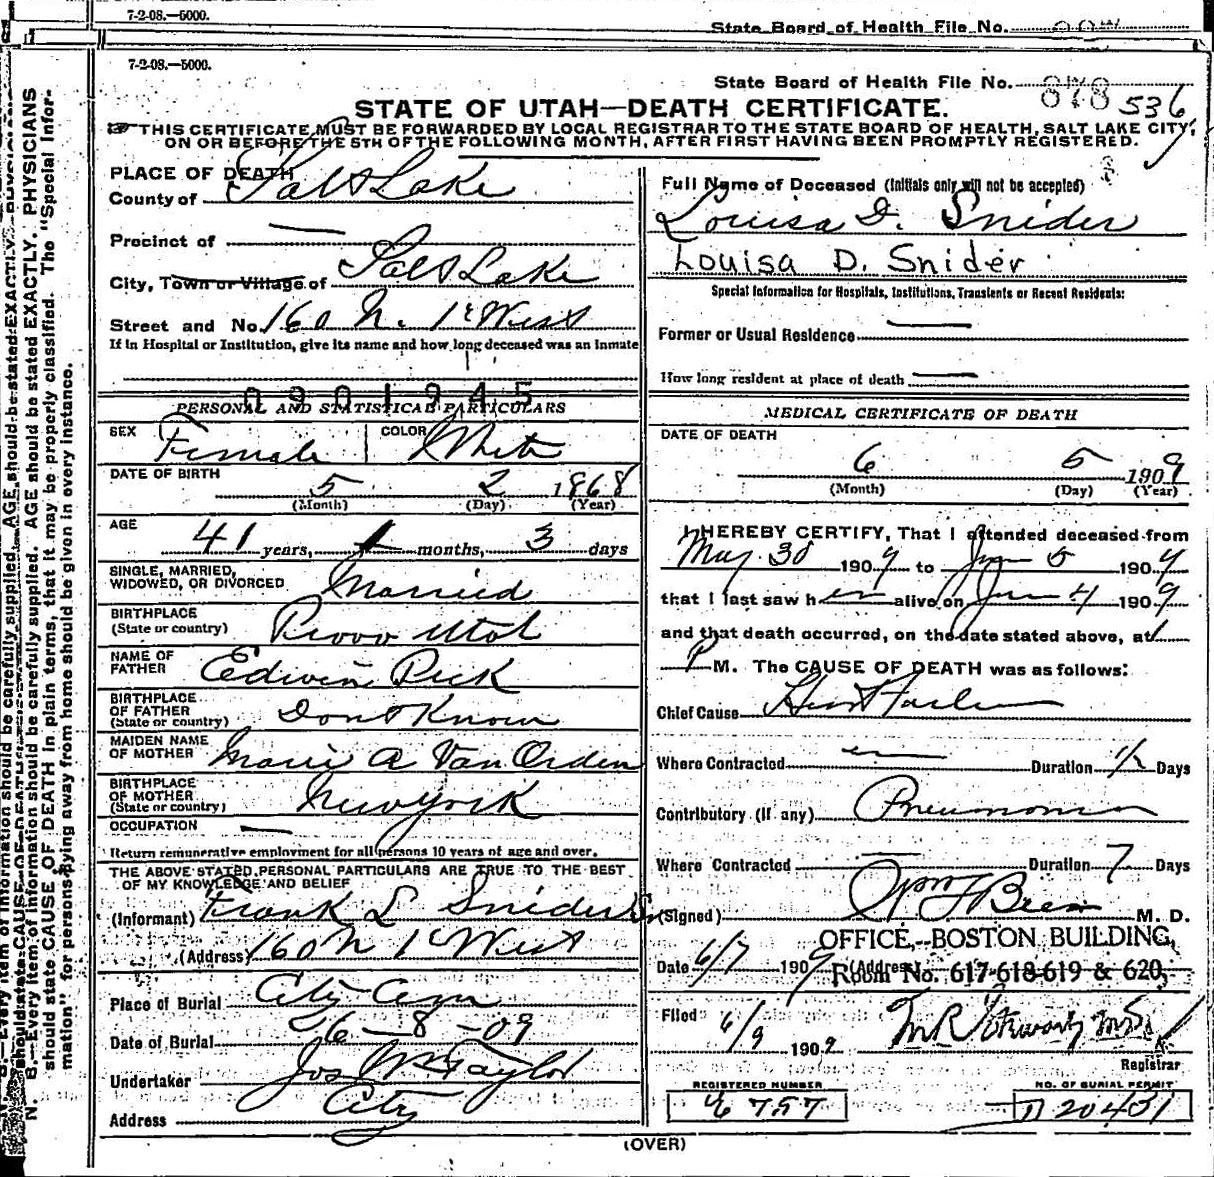 7-2-08.—5000.
State Board of Health File No.
7-2-08.—5000.
State Board of Health File No. 878 536
STATE OF UTAH—DEATH CERTIFICATE.
THIS CERTIFICATE MUST BE FORWARDED BY LOCAL REGISTRAR TO THE STATE BOARD OF HEALTH, SALT LAKE CITY,
ON OR BEFORE THE 5TH OF THE FOLLOWING MONTH, AFTER FIRST HAVING BEEN PROMPTLY REGISTERED.
PLACE OF DEATH
County of Salt Lake
Precinct of —
City, Town or Village of Salt Lake
Street and No. 160 N. 1st West
If in Hospital or Institution, give its name and how long deceased was an inmate
0901945
PERSONAL AND STATISTICAL PARTICULARS
SEX Female COLOR White
DATE OF BIRTH 5 2 1868
(Month) (Day) (Year)
AGE 41 years, 1 months, 3 days
SINGLE, MARRIED,
WIDOWED, OR DIVORCED Married
BIRTHPLACE
(State or country) Provo Utah
NAME OF
FATHER Edwin Peck
BIRTHPLACE
OF FATHER
(State or country) Dont Know
MAIDEN NAME
OF MOTHER Marie A Van Orden
BIRTHPLACE
OF MOTHER
(State or country) New York
OCCUPATION —
Return remunerative employment for all persons 10 years of age and over.
THE ABOVE STATED PERSONAL PARTICULARS ARE TRUE TO THE BEST
OF MY KNOWLEDGE AND BELIEF
(Informant) Frank L Snider Sr
(Address) 160 N 1st West
Place of Burial City Cem
Date of Burial 6-8-09
Undertaker Jos Wm Taylor
Address City
Full Name of Deceased (Initials only will not be accepted)
Louisa D. Snider
Louisa D. Snider
Special Information for Hospitals, Institutions, Transients or Recent Residents:
Former or Usual Residence —
How long resident at place of death —
MEDICAL CERTIFICATE OF DEATH
DATE OF DEATH
6 5 1909
(Month) (Day) (Year)
I HEREBY CERTIFY, That I attended deceased from
May 30 1909 to Jun 5 1909
that I last saw her alive on Jun 4 1909
and that death occurred, on the date stated above, at 1
P M. The CAUSE OF DEATH was as follows:
Chief Cause Heart Failure
Where Contracted Duration 1/2 Days
Contributory (if any) Pneumonia
Where Contracted — Duration 7 Days
(Signed) M. D.
OFFICE,--BOSTON BUILDING,
Date 6/7 1909 (Address) Room No. 617-618-619 & 620,
Filed 6/9 1909
Registrar
REGISTERED NUMBER
NO. OF BURIAL PERMIT
D 20431
(OVER)
N. B.—Every item of information should be carefully supplied. AGE should be stated EXACTLY. PHYSICIANS
should state CAUSE OF DEATH in plain terms, that it may be properly classified. The "Special Infor-
mation" for persons dying away from home should be given in every instance.